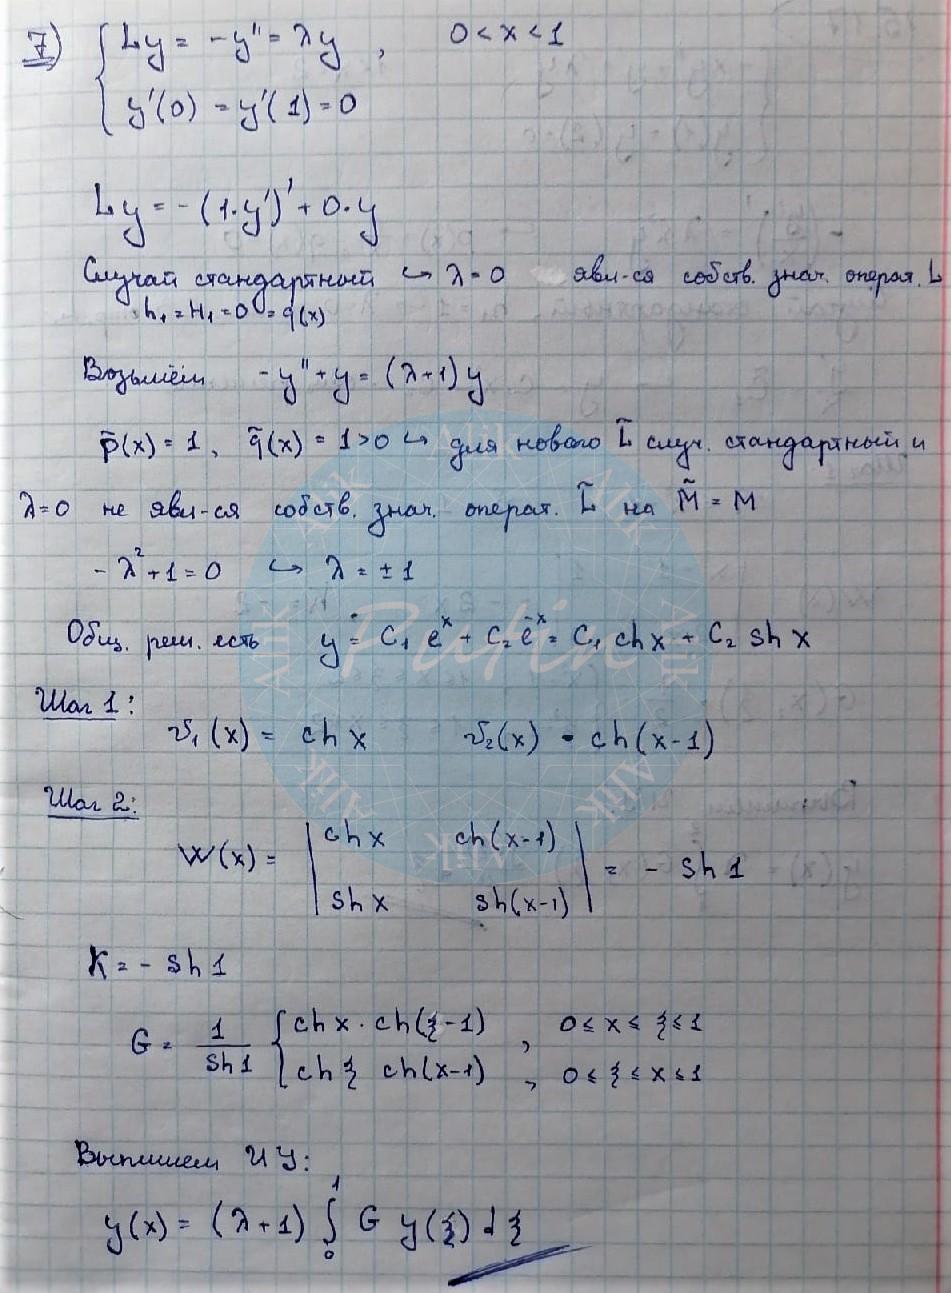 7) { Ly = -y'' = λy , 0 < x < 1
y'(0) = y'(1) = 0
Ly = -(1·y')' + 0·y
Случай стандартный ↪ λ = 0 явл-ся собств. знач. операт. L
h₁ = H₁ = 0 = q(x)
Возьмём -y'' + y = (λ+1) y
p̃(x) = 1, q̃(x) = 1 > 0 ↪ для нового L̃ случ. стандартный и
λ=0 не явл-ся собств. знач. операт. L̃ на M̃ = M
-λ² + 1 = 0 ↪ λ = ±1
Общ. реш. есть y = C₁ eˣ + C₂ e⁻ˣ = C₁ ch x + C₂ sh x
Шаг 1:
v₁(x) = ch x v₂(x) = ch(x-1)
Шаг 2:
W(x) = | ch x ch(x-1) |
| sh x sh(x-1) | = - sh 1
K = - sh 1
G = 1/sh 1 { ch x · ch(ξ-1) , 0 ≤ x ≤ ξ ≤ 1
ch ξ ch(x-1) , 0 ≤ ξ ≤ x ≤ 1
Выпишем ИУ:
y(x) = (λ+1) ∫₀¹ G y(ξ) dξ
Alik Putin